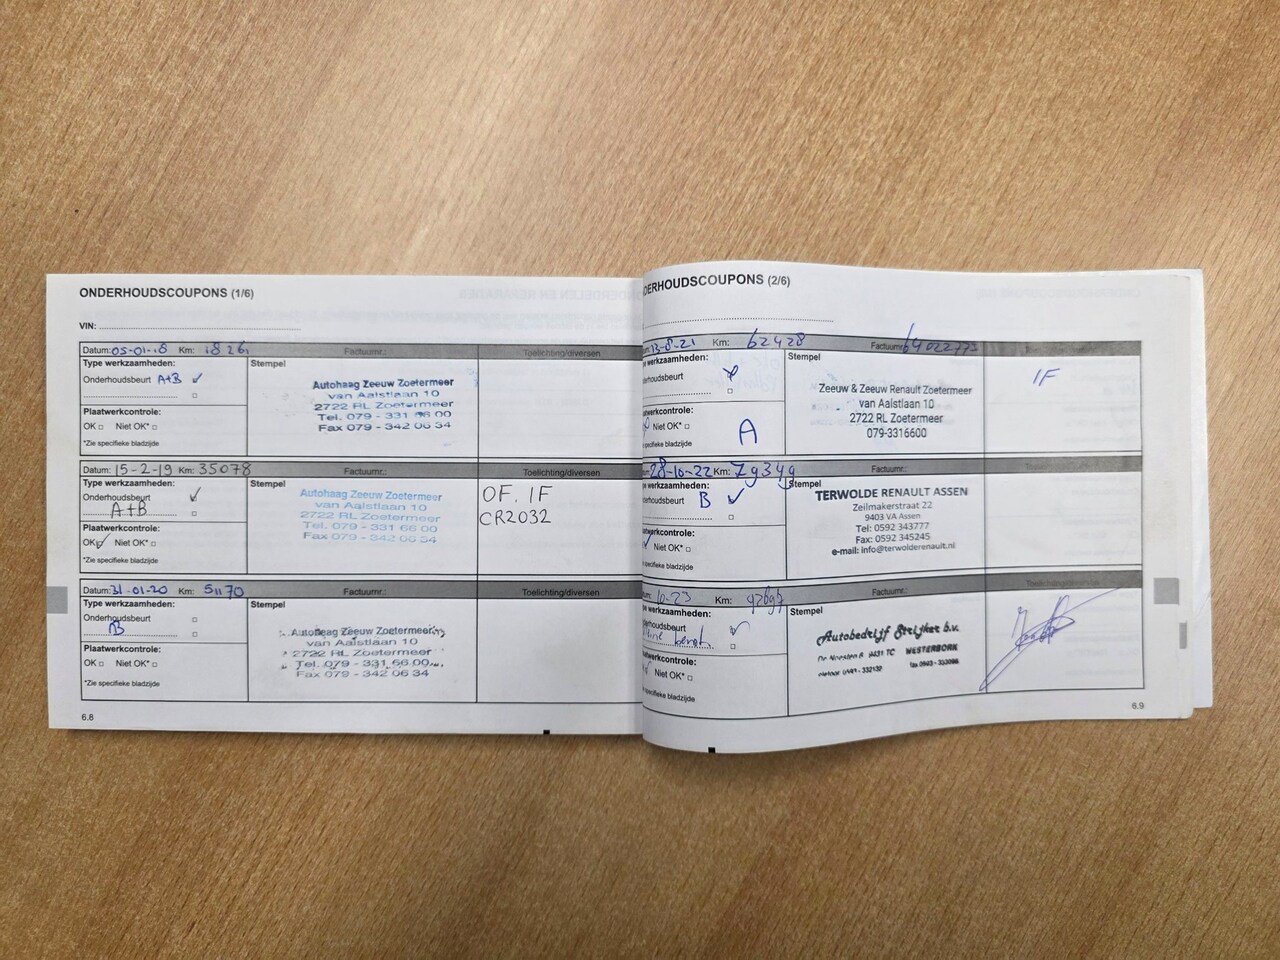 ONDERHOUDSCOUPONS (1/6)
VIN:
Datum: 05-01-18 Km: 1826 Factuurnr.: Toelichting/diversen
Type werkzaamheden: Stempel
Onderhoudsbeurt A+B ✓
Plaatwerkcontrole:
OK □ Niet OK* □
*Zie specifieke bladzijde
Autohaag Zeeuw Zoetermeer
van Aalstlaan 10
2722 RL Zoetermeer
Tel. 079 - 331 66 00
Fax 079 - 342 06 34
Datum: 15-2-19 Km: 35078 Factuurnr.: Toelichting/diversen
Type werkzaamheden: Stempel
Onderhoudsbeurt ✓
A+B □
Plaatwerkcontrole:
OK ✓ Niet OK* □
*Zie specifieke bladzijde
Autohaag Zeeuw Zoetermeer
van Aalstlaan 10
2722 RL Zoetermeer
Tel. 079 - 331 66 00
Fax 079 - 342 06 34
OF. IF
CR2032
Datum: 31-01-20 Km: 51170 Factuurnr.: Toelichting/diversen
Type werkzaamheden: Stempel
Onderhoudsbeurt □
B □
Plaatwerkcontrole:
OK □ Niet OK* □
*Zie specifieke bladzijde
Autohaag Zeeuw Zoetermeer
van Aalstlaan 10
2722 RL Zoetermeer
Tel. 079 - 331 66 00
Fax 079 - 342 06 34
6.8
DERHOUDSCOUPONS (2/6)
13-8-21 Km: 62428 Factuurnr.:
werkzaamheden: Stempel
derhoudsbeurt
Niet OK* □
A
specifieke bladzijde
Zeeuw & Zeeuw Renault Zoetermeer
van Aalstlaan 10
2722 RL Zoetermeer
079-3316600
IF
28-10-22 Km: 79349 Factuurnr.:
werkzaamheden: Stempel
derhoudsbeurt B ✓
Niet OK* □
specifieke bladzijde
TERWOLDE RENAULT ASSEN
Zeilmakerstraat 22
9403 VA Assen
Tel: 0592 343777
Fax: 0592 345245
e-mail: info@terwolderenault.nl
10-23 Km: Factuurnr.:
werkzaamheden: Stempel
derhoudsbeurt ✓
Niet OK* □
specifieke bladzijde
Autobedrijf Strijker b.v.
9431 TC WESTERBORK
6.9